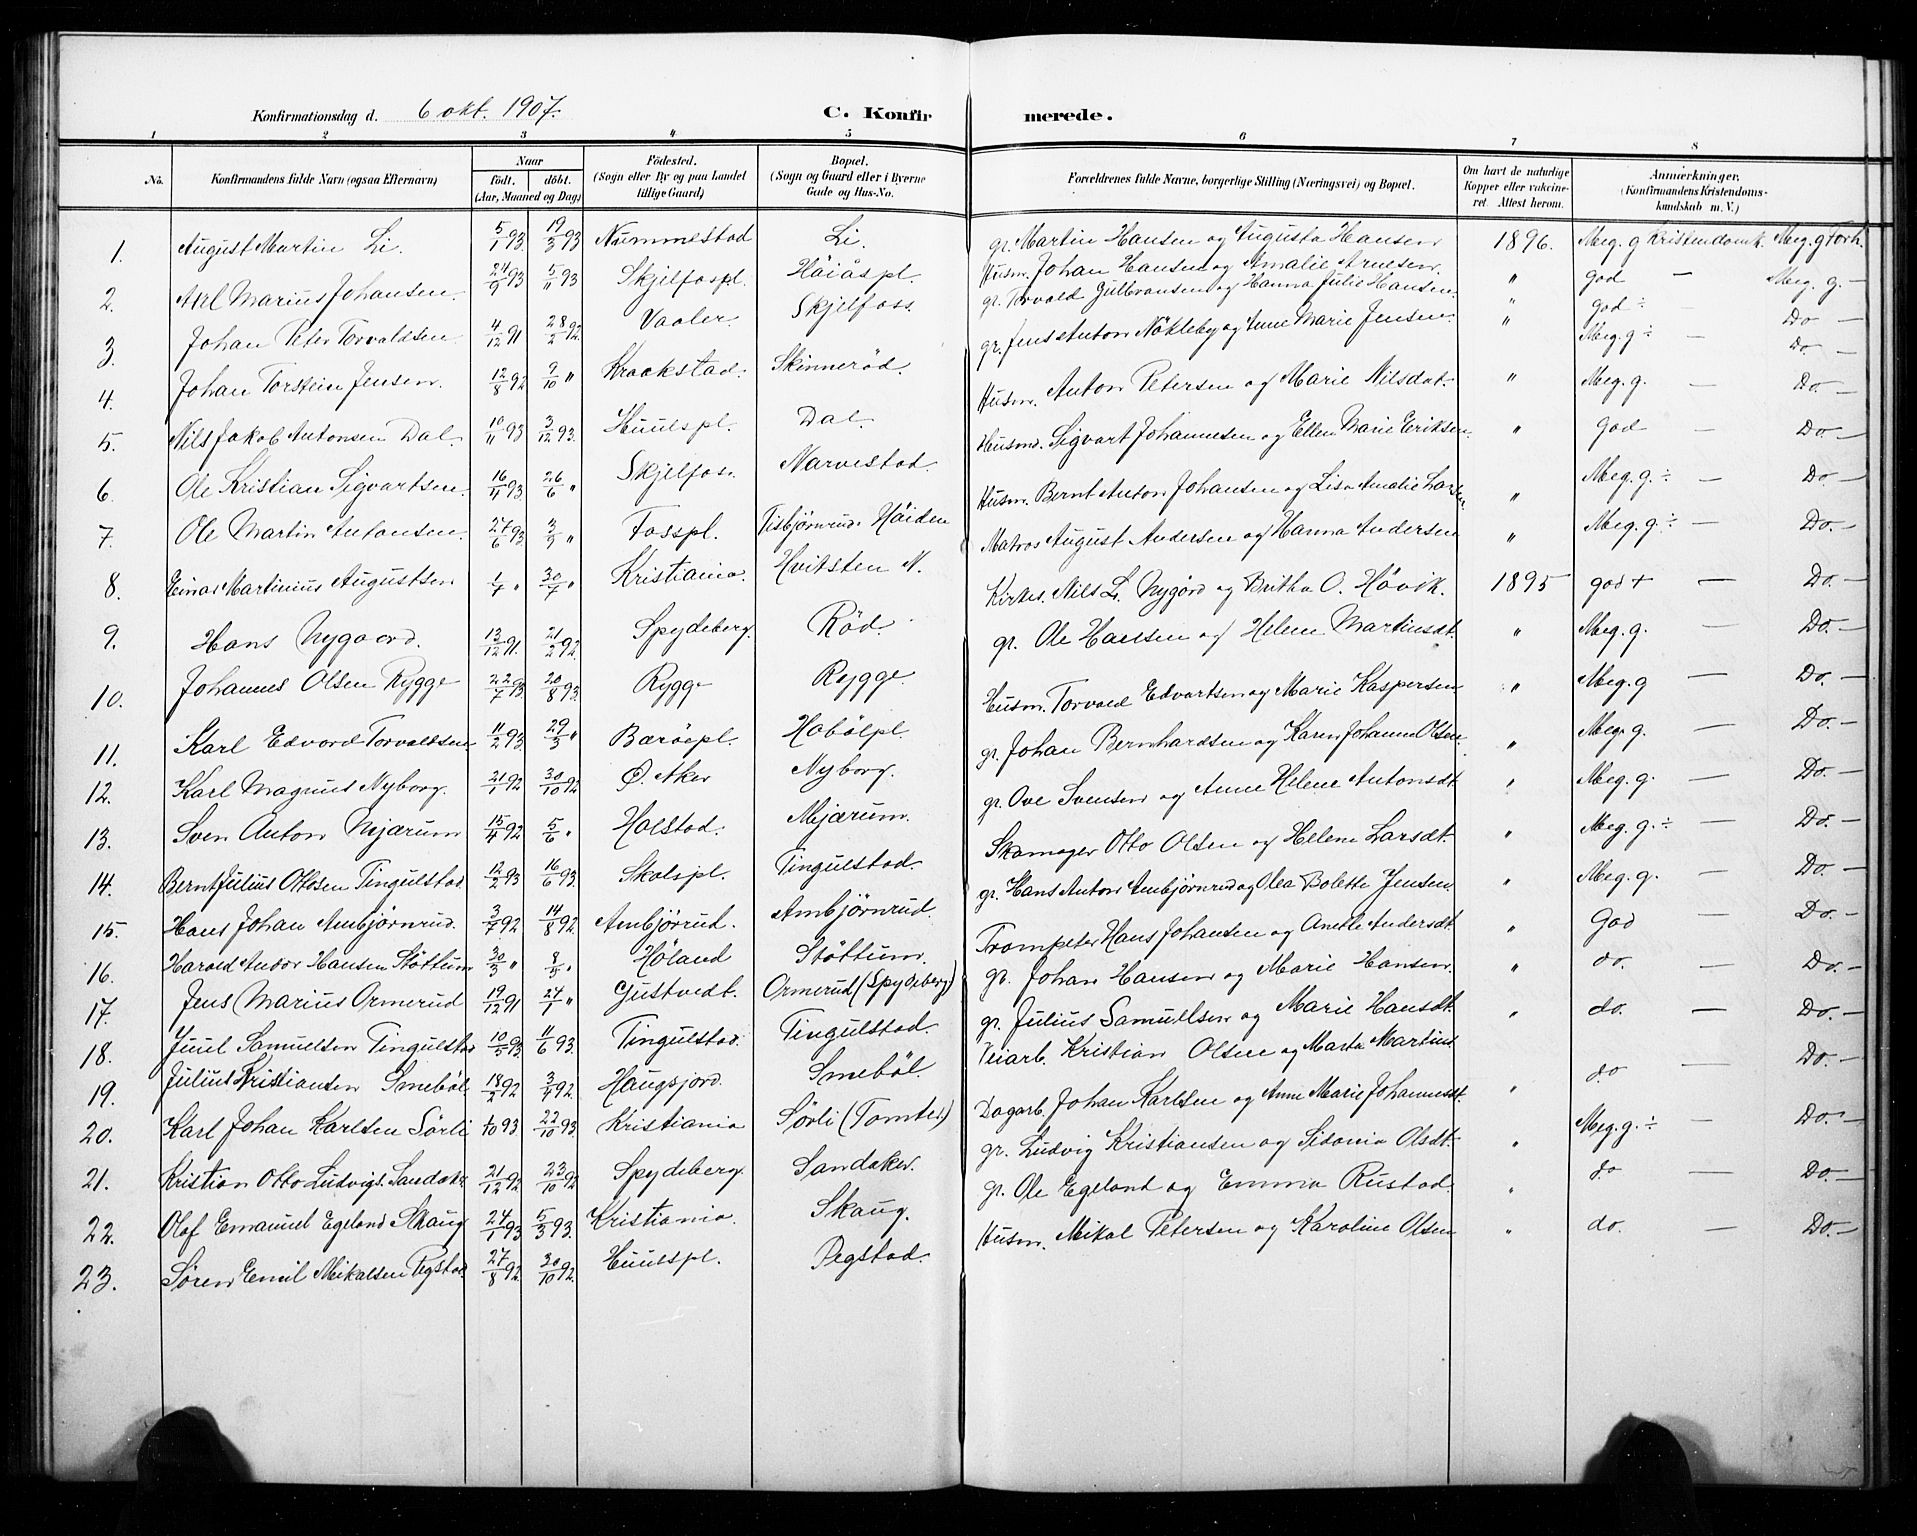 Konfirmationsdag d. 6 okt. 1907. C. Konfirmerede.
1 2 3 4 5 6 7 8
No. Konfirmandens fulde Navn (ogsaa Efternavn) Naar födt. döbt. (Aar, Maaned og Dag) Födested. (Sogn eller By og paa Landet tillige Gaard) Bopæl. (Sogn og Gaard eller i Byerne Gade og Hus-No. Forældrenes fulde Navne, borgerlige Stilling (Næringsvei) og Bopæl. Om havt de naturlige Kopper eller vakcineret. Attest herom. Anmærkninger. (Konfirmandens Kristendomskundskab m. V.)
1. August Martin Li. 5/1 93. 19/3 93 Nummestad Li. gr. Martin Hansen og Augusta Hansen 1896. Meg. g Kristendomk. Meg. g Forh.
2. Axl Marius Johansen. 24/9 93 5/11 93 Skjelfospl. Höiåspl. Husm. Johan Hansen og Amalie Arnesen. " god — Meg. g. —
3. Johan Peter Torvaldsen. 4/12 91 28/2 92. Vaaler. Skjelfoss. gr. Torvald Gulbransen og Hanna Julie Hansen. " god ÷ — Do —
4. Johan Torstein Jensen. 12/8 92 9/10 " Kraakstad. Skinneröd. gr. Jens Anton Nökleby og Anne Marie Jensen. " Meg. g ÷ — Do. —
5. Nils Jakob Antonsen Dal. 10/11 93 3/12 93. Huulspl. Dal. Husm. Anton Petersen og Marie Nilsdat. " Meg. g. — Do. —
6. Ole Kristian Sigvartsen. 16/4 93. 26/6 " Skjelfos. Narvestad. Husmd. Sigvart Johannesen og Ellen Marie Eriksen. " God — Do. —
7. Ole Martin Antonsen. 27/6 93. 3/9 " Fosspl. Tisbjörnrud Höiden Husm. Bernt Anton Johansen og Lisa Amalie Larsen " Meg. g. ÷ — Do. —
8. Einar Martinius Augustsen 1/7 " 30/7 " Kristiania. Hvitsten N. Matros August Andersen og Hanna Andersen " Meg. g. ÷ — Do. —
9. Hans Nygaard. 13/12 91. 21/2 92. Spydeberg. Röd. Kirkes. Nils L. Nygård og Britha O. Hövik. 1895 god + — Do. —
10. Johannes Olsen Rygge 22/7 93. 20/8 93. Rygge Rygge. gr. Ole Hansen og Helene Martinsdt. " Meg. g. — Do. —
11. Karl Edvard Torvaldsen 11/2 93. 29/3 " Baröepl. Hobölpl. Husm. Torvald Edvartsen og Marie Kaspersen " Meg. g — Do. —
12. Karl Magnus Nyborg. 21/1 92 30/10 92 Ø. Aker Nyborg. gr. Johan Bernhardsen og Karen Johanne Olsen. " Meg. g. — Do —
13. Sven Anton Mjærum 15/4 92 5/6 " Holstad. Mjærum. gr. Ove Svensen og Anne Helene Antonsdt. " Meg. g. — Do. —
14. Bernt Julius Ottosen Tingulstad. 12/2 93 16/6 93. Skolspl. Tingulstad. Skomager Otto Olsen og Helene Larsdt. " Meg. g. ÷ — Do. —
15. Hans Johan Ambjörnrud. 3/7 92 14/8 92. Ambjörrud. Ambjörnrud. gr. Hans Anton Ambjörnrud og Olea Bolette Jensen. " Meg. g. — Do. —
16. Harald Andor Hansen Stöttum 30/3 " 8/5 " Höland Stöttum. Trompeter Hans Johansen og Anette Andersdt. " God — Do. —
17. Jens Marius Ormerud 19/12 91 24/1 " Gjustvedt. Ormerud (Spydeberg) gr. Johan Hansen og Marie Hansen. " do. — Do. —
18. Juul Samuelsen Tingulstad 10/5 93. 11/6 93. Tingulstad. Tingulstad. gr. Julius Samuelsen og Marie Hansdt. " do. — Do. —
19. Julius Kristiansen Smeböl. 18/2 92 3/4 92. Haugsjord. Smeböl. Veiarb. Kristian Olsen og Marta Martins " do — Do. —
20. Karl Johan Karlsen Sörli 1/10 93. 22/10 93. Kristiania Sörli (Tomter) Dagarb. Johan Karlsen og Anne Marie Johannesdt. " Meg. g. ÷ — Do. —
21. Kristian Otto Ludvigs. Sandaker 21/12 92 23/10 92 Spydeberg. Sandaker. gr. Ludvig Kristiansen og Sidonia Olsdt. " do — Do. —
22. Olaf Emanuel Egeland Skaug 24/1 93 5/3 93. Kristiania. Skaug. gr. Ole Egeland og Emma Rustad. " do. — Do. —
23. Sören Emil Mikalsen Pegstad. 27/8 92 30/10 92. Huulspl. Pegstad. Husm. Mikal Petersen og Karoline Olsen "